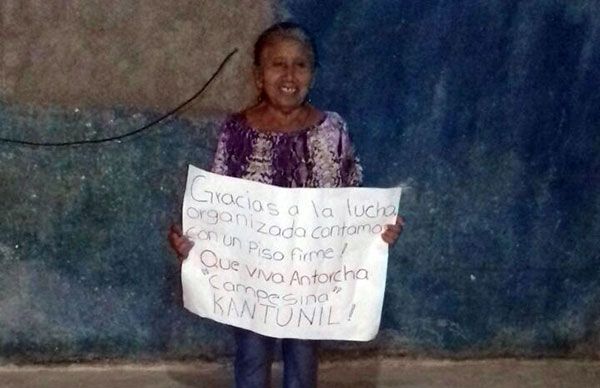 Gracias a la lucha
organizada contamos
con un Piso firme!
Que viva Antorcha
"Campesina"
KANTUNIL!